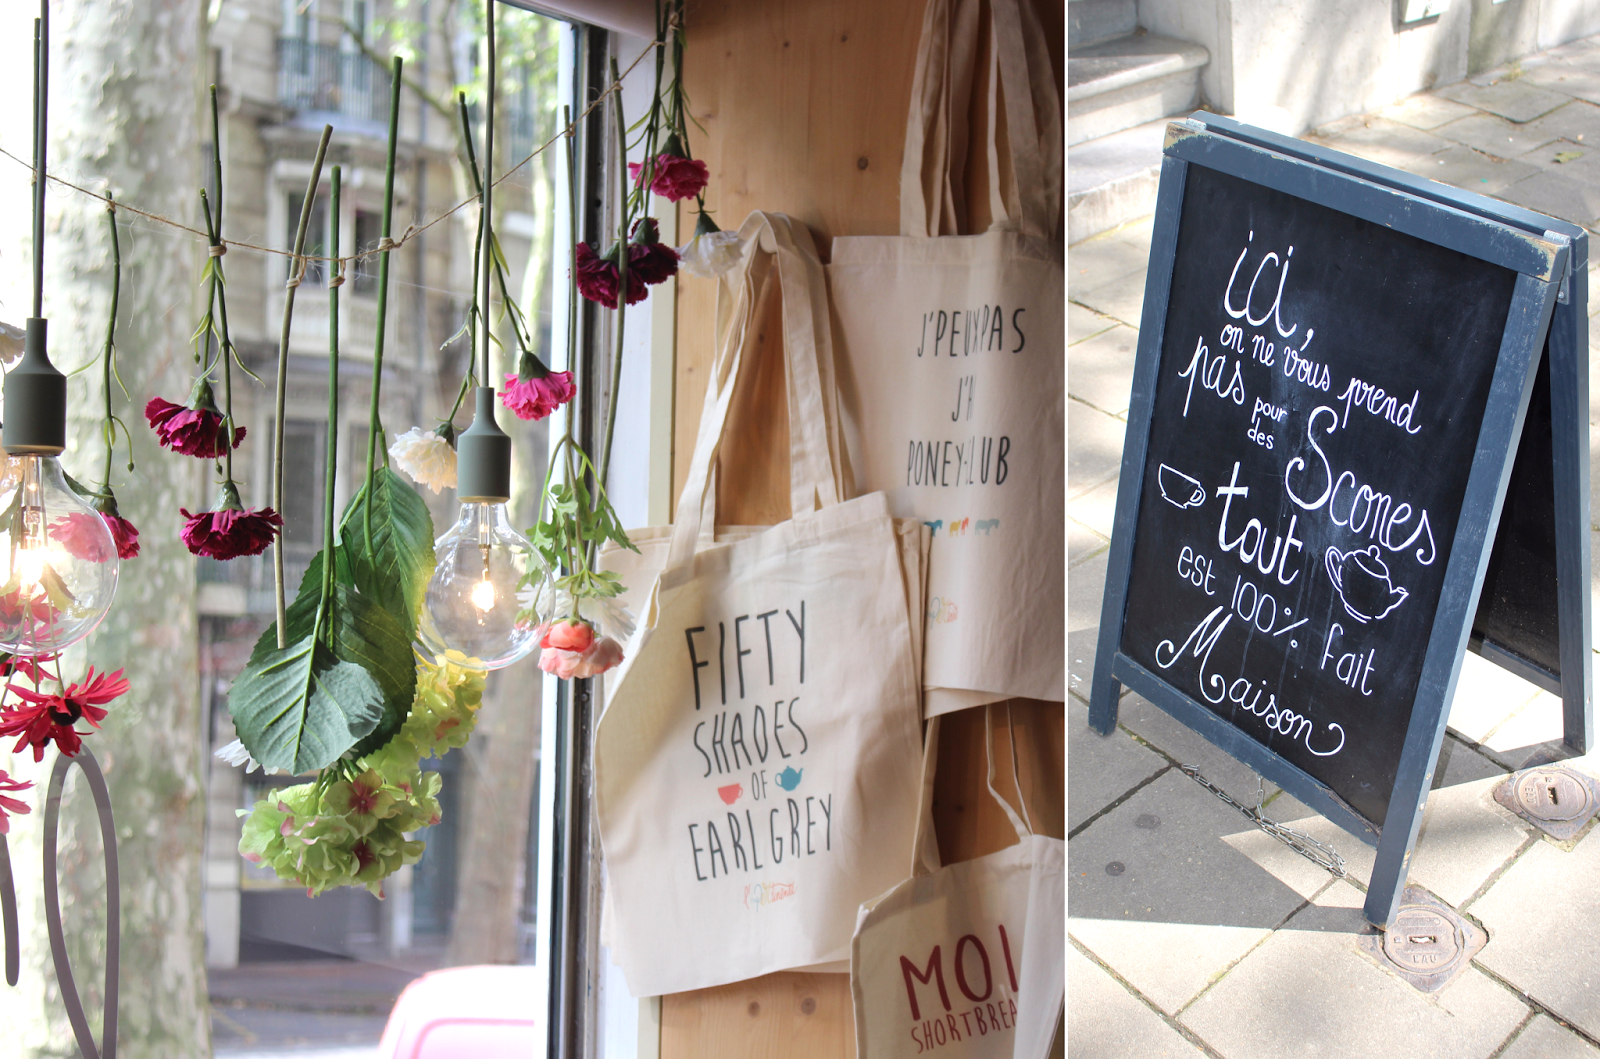 J'PEUXPAS
J'A
PONEY-CLUB
FIFTY
SHADES
OF
EARL GREY
MOI
SHORTBREA
ici,
on ne vous prend
pas pour
des Scones
tout
est 100% fait
Maison
EAU